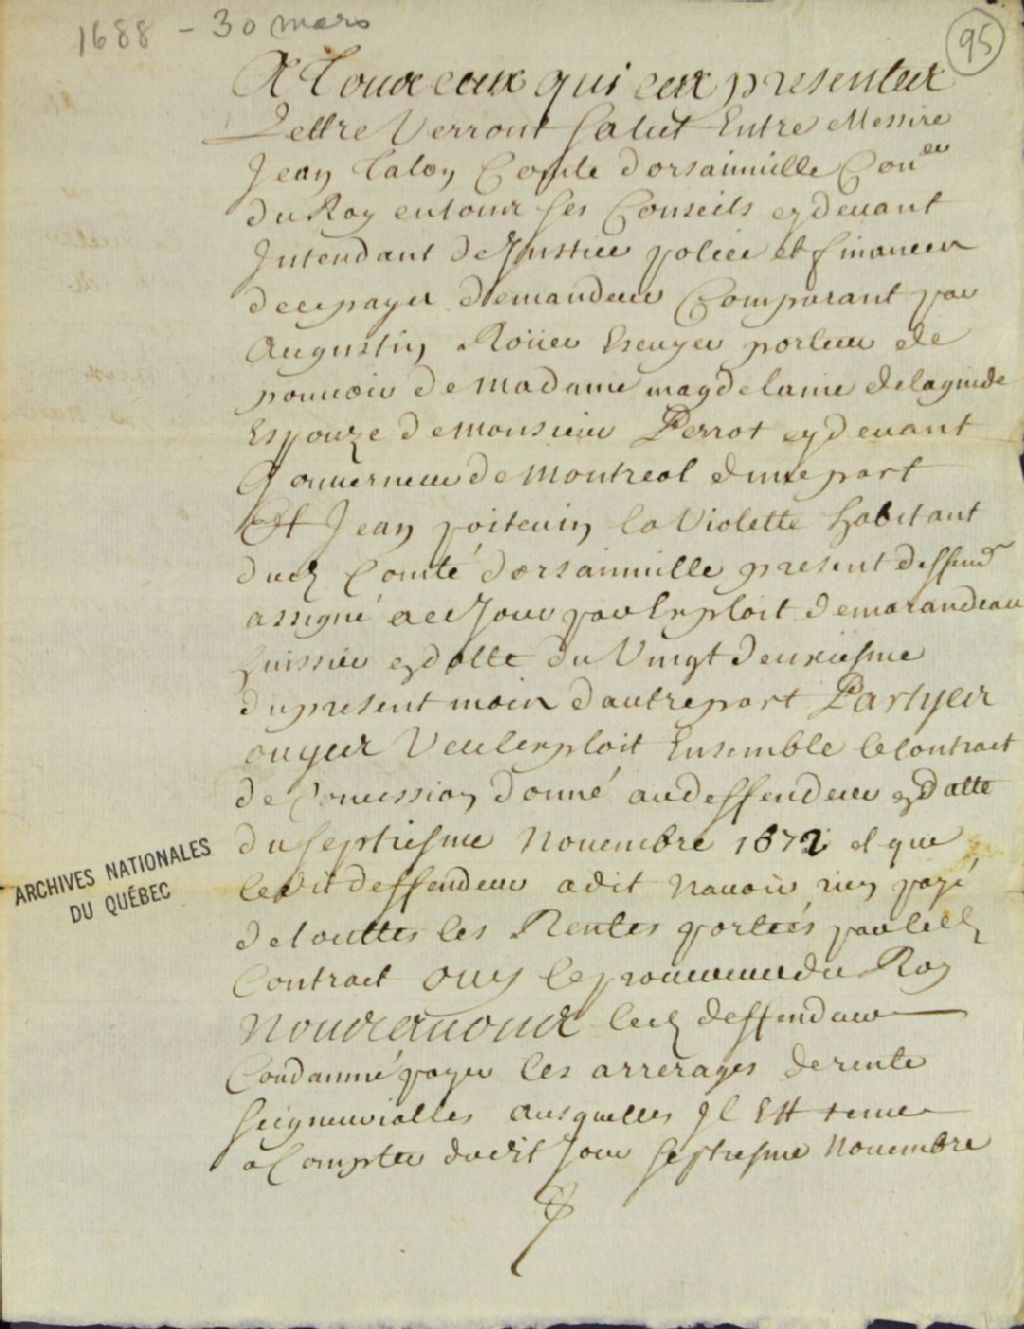 1688 - 30 mars
95
A Tous ceux qui ces presentes
Lettre Verront Salut Entre Messire
Jean Talon Comte Dorsainuille Con.er
du Roy en tous ses Conseils cy deuant
Jntendant de Justice police et finances
de ce pays demandeur Comparant par
Augustin Roüer Escuyer porteur de
pouuoir de Madame magdelaine delaguide
Espouze de Monsieur Perrot cy deuant
Gouuerneur de Montreal dune part
Et Jean poiteuin la Violette habitant
dud Comté dorsainuille present deffend.r
assigné a ce Jour par Exploit de marandeau
huissier en datte du Vingt deuxiesme
du present mois dautre part Partyes
ouyes Veu lexploit Ensemble le Contract
de Concession donné au deffendeur en datte
du septiesme Nouembre 1672 et que
ledit deffendeur a dit nauoir rien payé
de touttes les Rentes portées par led
Contract ouy le procureur du Roy
Nous auons led deffendeur
Condamné payer les arrerages de rente
seigneurialles ausquelles Jl Est tenu
a Compter dudit Jour septiesme Nouembre
ARCHIVES NATIONALES
DU QUÉBEC